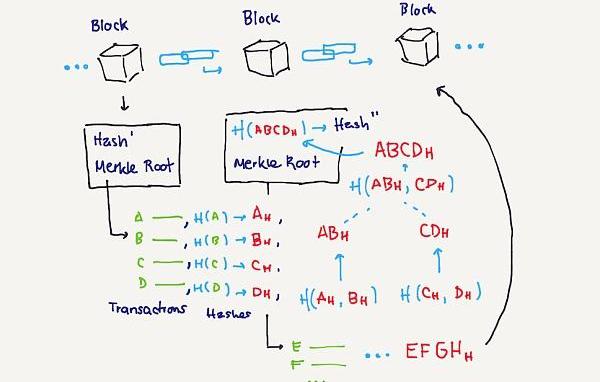 Block
Block
Block
...
...
Hash'
Merkle Root
H(ABCDH) → Hash"
Merkle Root
ABCDH
H(ABH, CDH)
ABH
CDH
H(AH, BH)
H(CH, DH)
A , H(A) → AH,
B , H(B) → BH,
C , H(C) → CH,
D , H(D) → DH,
Transactions Hashes
E
F
...
... EFGHH